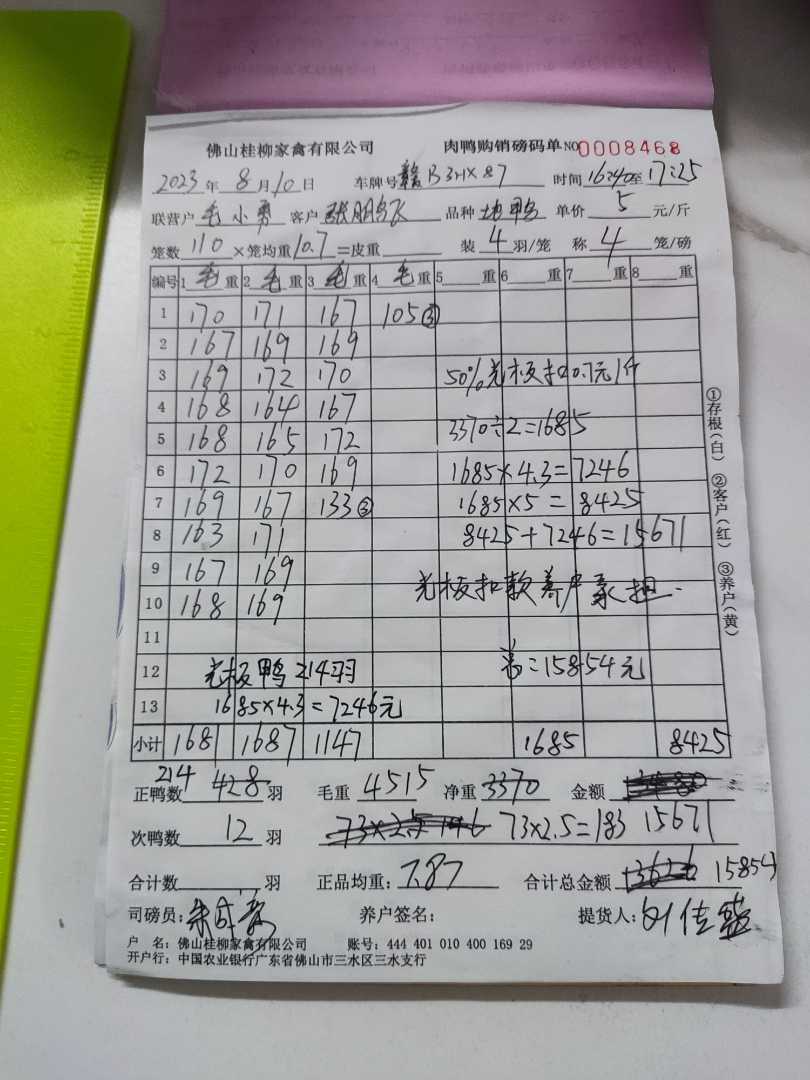 佛山桂柳家禽有限公司 肉鸭购销磅码单 NO 0008468
2023年8月10日 车牌号 赣B3HX87 时间 16:40至17:25
联营户 毛小勇 客户 张鹏飞 品种 地鸭 单价 5 元/斤
笼数 110 ×笼均重 10.7 =皮重 装 4 羽/笼 称 4 笼/磅
编号 1 毛 重 2 毛 重 3 毛 重 4 毛 重 5 重 6 重 7 重 8 重
1 170 171 167 105③
2 167 169 169
3 169 172 170 50%光板扣0.7元/斤
4 168 164 167
5 168 165 172 3370÷2=1685
6 172 170 169 1685×4.3=7246
7 169 167 133② 1685×5=8425
8 163 171 8425+7246=15671
9 167 169
10 168 169 光板扣款养户承担.
11
12 光板鸭214羽 总=15854元
13 1685×4.3=7246元
小计 1681 1687 1147 1685 8425
正鸭数 214 428 羽 毛重 4515 净重 3370 金额
次鸭数 12 羽 73×2.5 146 73×2.5=183 15671
合计数 羽 正品均重: 7.87 合计总金额 15854
司磅员: 养户签名: 提货人: 刘佳
户 名: 佛山桂柳家禽有限公司 账号: 444 401 010 400 169 29
开户行: 中国农业银行广东省佛山市三水区三水支行
①存根(白) ②客户(红) ③养户(黄)